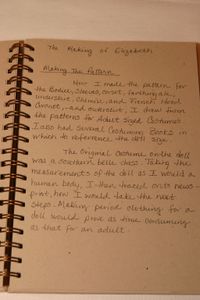 The Making of Elizabeth
Making The Pattern
How I made the pattern for
the Bodice, Sleeves, corset, farthingale,
underskirt, chemise, and French Hood
Bonnet, and overskirt, I drew from
the patterns for Adult Sized Costumes.
I also had several Costuming Books in
which to reference the doll size.
The Original costume on the doll
was a southern belle class. Taking the
measurements of the doll as I would a
human body, I then traced onto news-
print, how I would take the next
steps. Making period clothing for a
doll would prove as time consuming
as that for an adult.